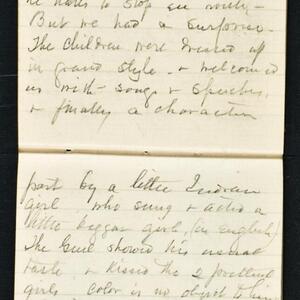 he wants to stop en route -
But we had a surprise.
The children were dressed up
in grand style - & welcomed
us with - songs & speeches,
& finally a character
part by a little Indian
girl who sung & acted a
little beggar girl, (in English)
The Genl showed his usual
taste & kissed the 2 prettiest
girls color is no object to him